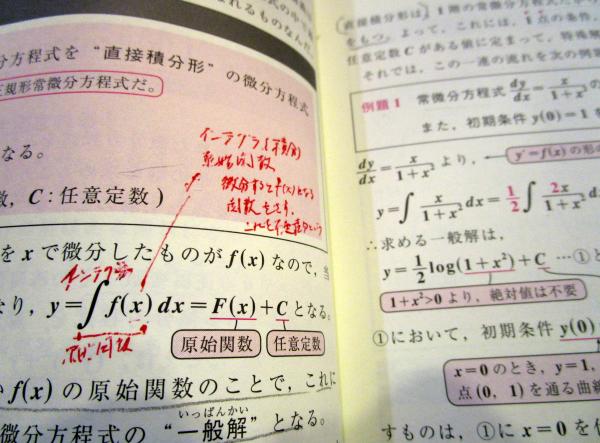 れるものなんだ
分方程式を “直接積分形” の微分方程式
正規形常微分方程式だ。
なる。
数, C:任意定数)
インテグラル(積分)
原始関数
微分するとf(x)になる
関数をさす。
を x で微分したものが f(x) なので,
なり, y=∫f(x)dx=F(x)+Cとなる。
原始関数
任意定数
f(x) の原始関数のことで, これに
いっぱんかい
微分方程式の “一般解” となる。
直接積分形は, 1 階の常微分方程式
をもつ。よって, これには, 1 点の条件,
任意定数 C がある値に定まって, 特殊解
それでは, この一連の流れを次の例題
例題 1 常微分方程式 dy/dx = x/(1+x²) の
また, 初期条件 y(0)=1 を
dy/dx = x/(1+x²) より, y'=f(x) の形の
y=∫ x/(1+x²) dx = 1/2 ∫ 2x/(1+x²) d
∴求める一般解は,
y=1/2 log(1+x²)+C …①と
1+x²>0 より, 絶対値は不要
①において, 初期条件 y(0)
x=0 のとき, y=1,
点(0, 1) を通る曲線
すものは, ①に x=0 を